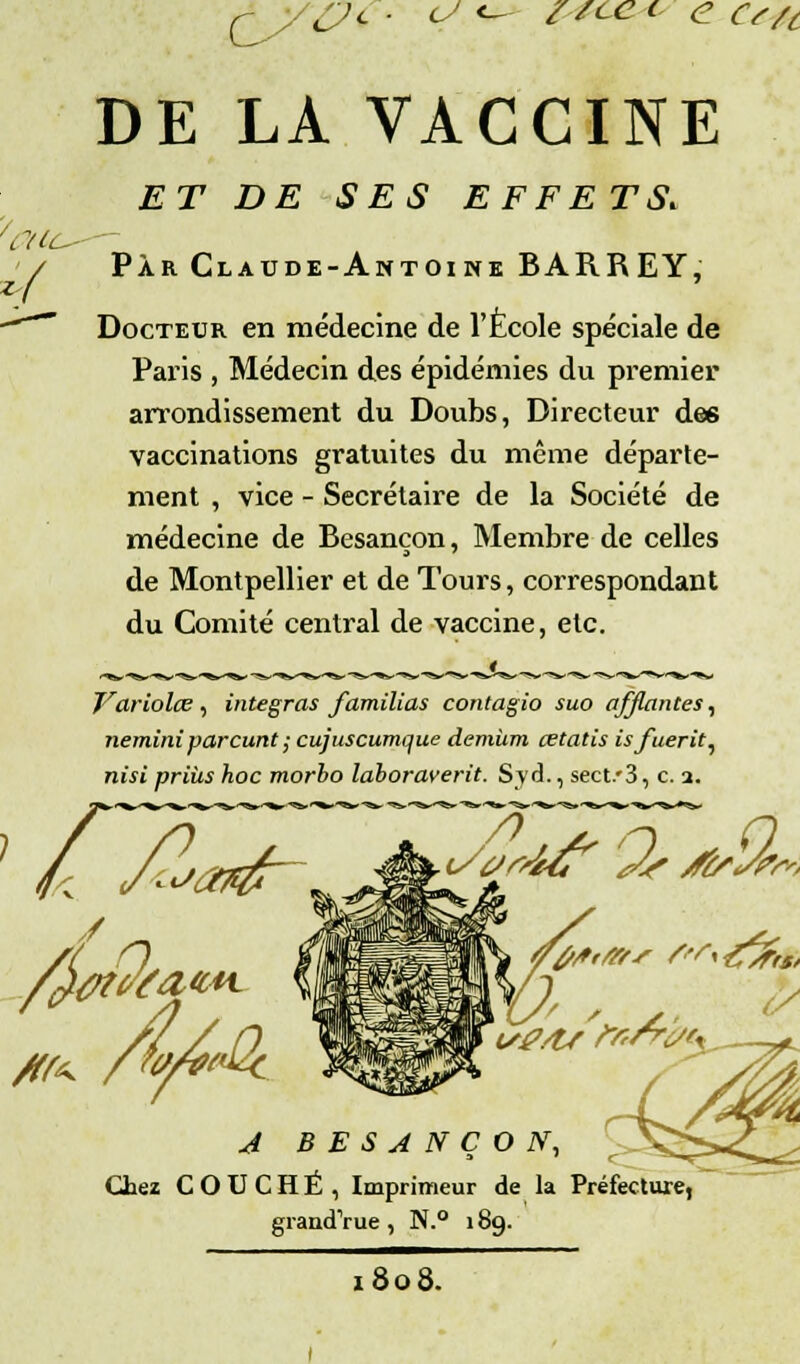 DE LA VACCINE
ET DE SES EFFETS.
PAR CLAUDE-ANTOINE BARREY,
DOCTEUR en médecine de l'École spéciale de
Paris , Médecin des épidémies du premier
arrondissement du Doubs, Directeur des
vaccinations gratuites du même départe-
ment , vice - Secrétaire de la Société de
médecine de Besançon, Membre de celles
de Montpellier et de Tours, correspondant
du Comité central de vaccine, etc.
Variolæ, integras familias contagio suo afflantes,
nemini parcunt ; cujuscumque demùm ætatis is fuerit,
nisi priùs hoc morbo laboraverit. Syd., sect. 3, c. 2.
A BESANÇON,
Chez COUCHÉ, Imprimeur de la Préfecture,
grand'rue, N.º 189.
1808.